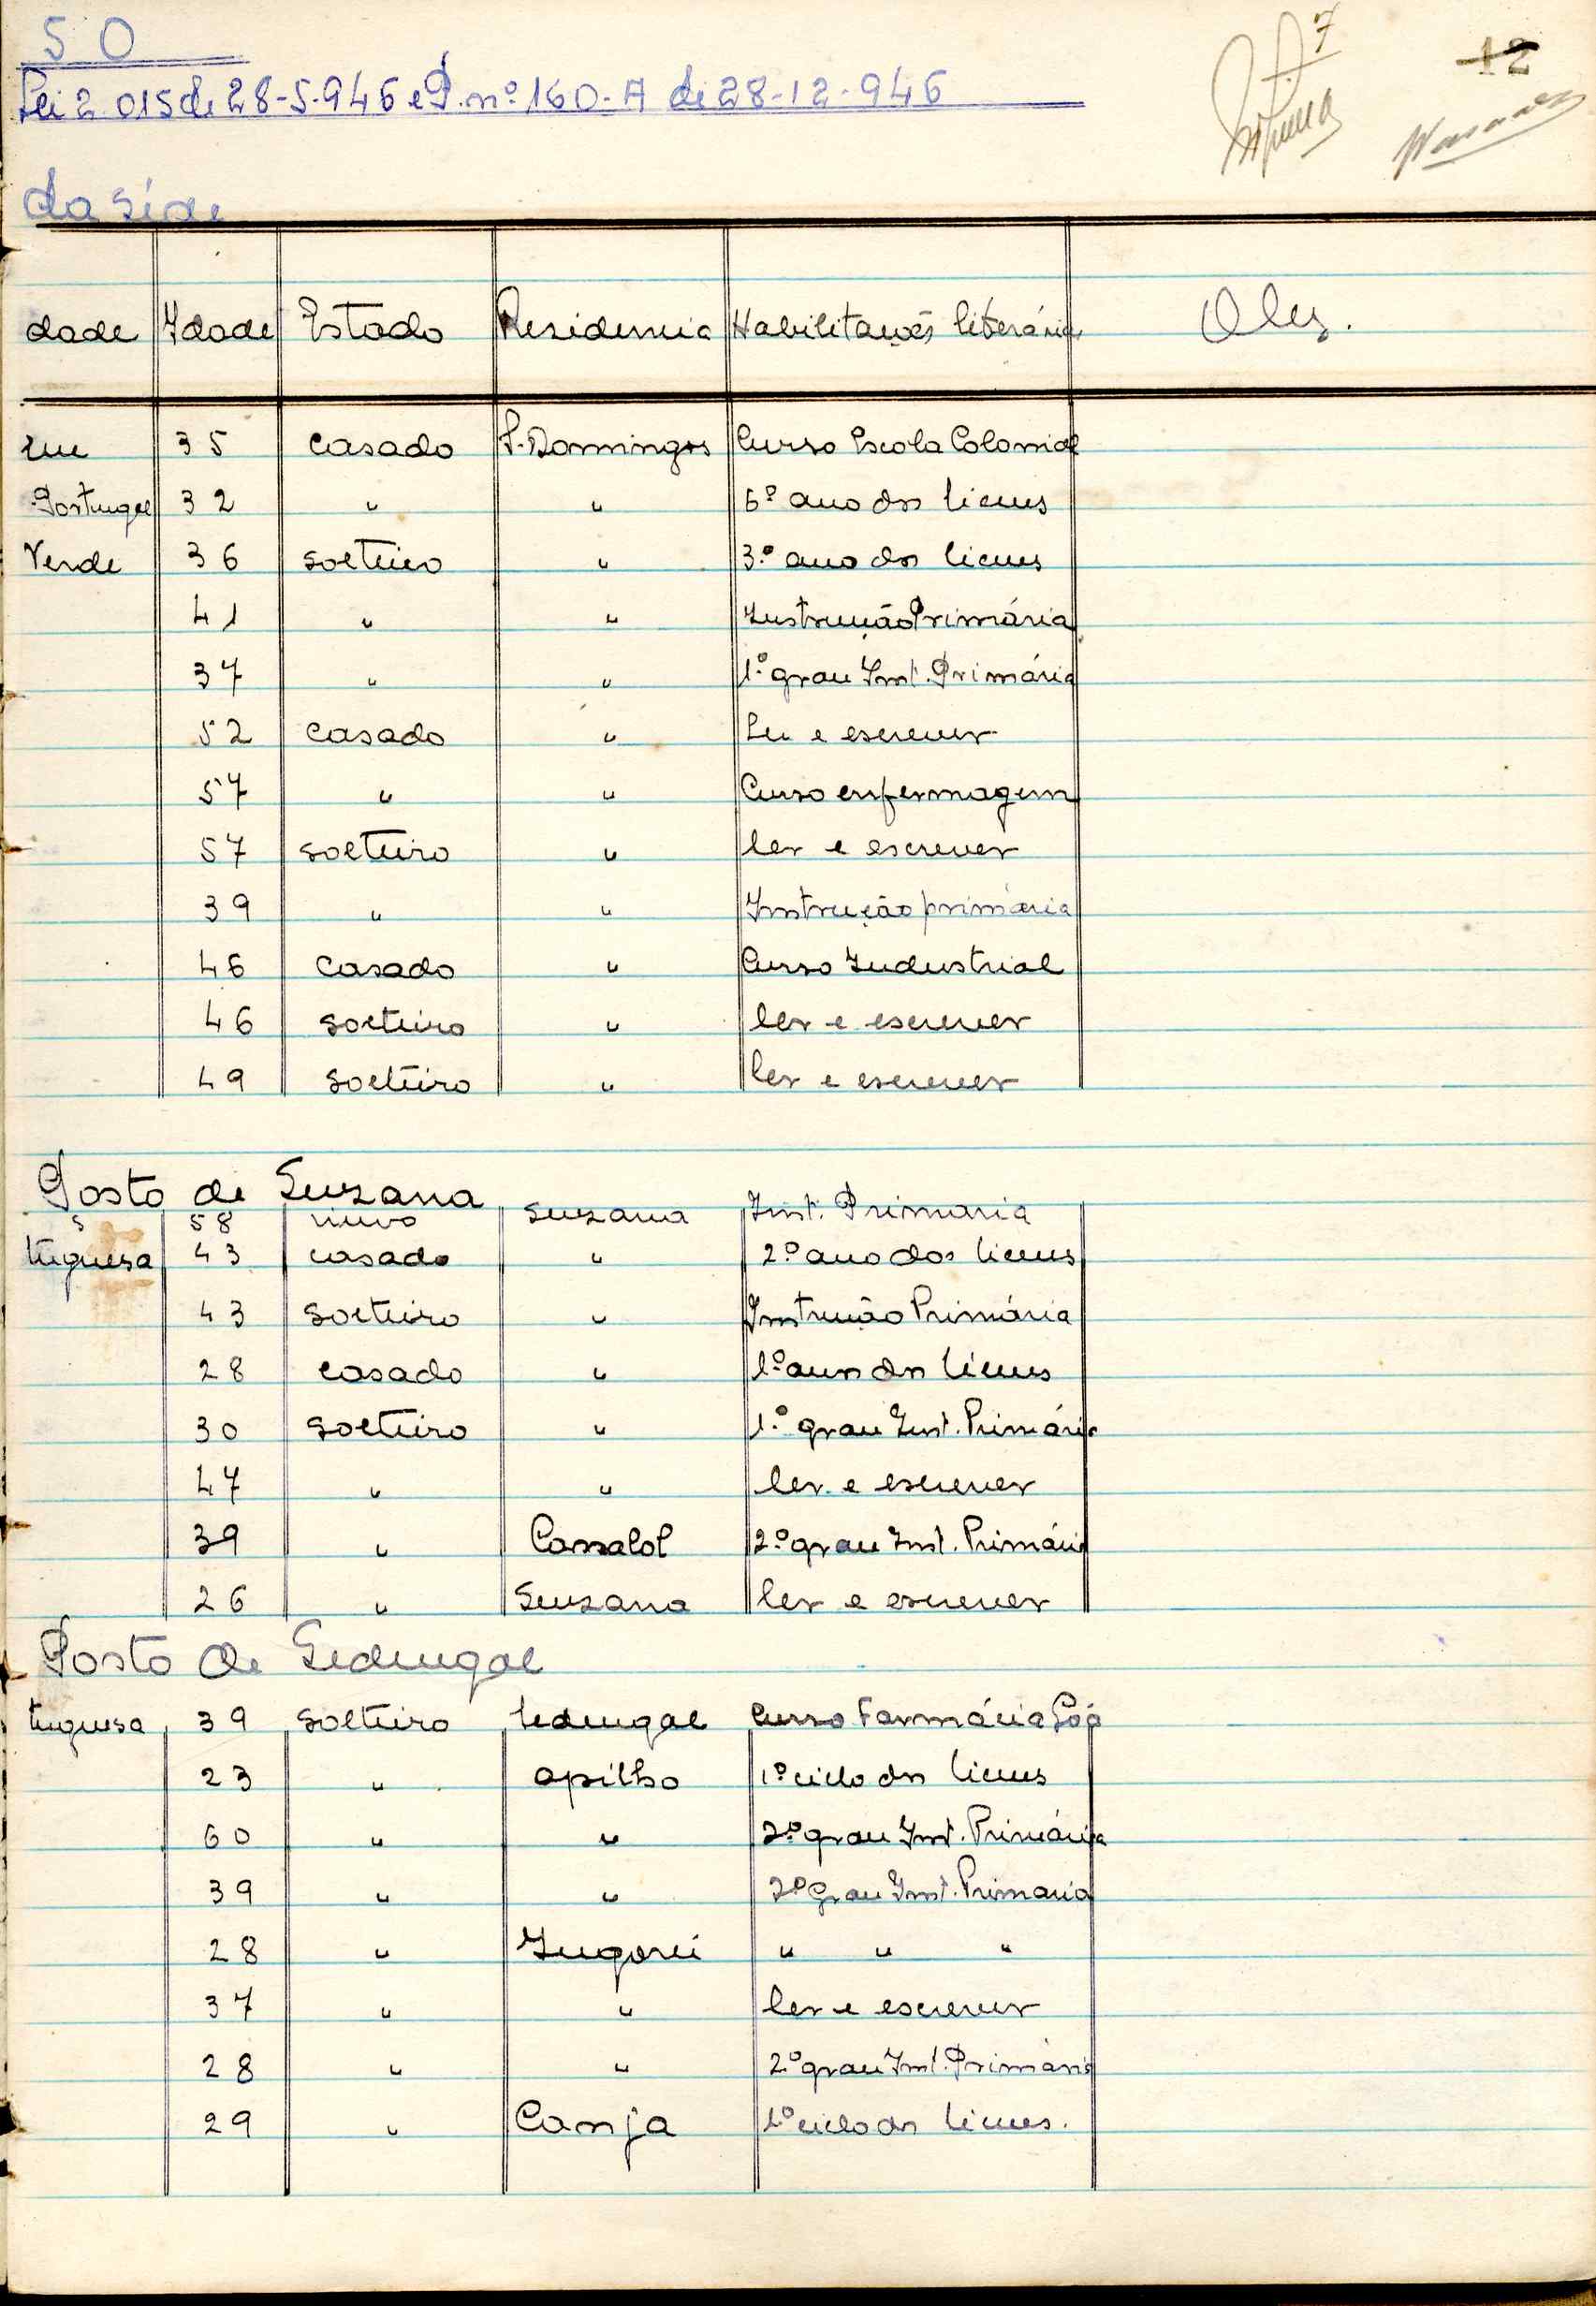 S O
Lei 2.015 de 28-5-946 e P. nº 160-A de 28-12-946
7
12
da séde
dade Idade Estado Residencia Habilitações literárias Obs.
35 casado S. Domingos Curso Escola Colonial
Portugal 32 " " 6º ano dos liceus
Verde 36 solteiro " 3º ano dos liceus
41 " " Instrução Primária
37 " " 1º grau Inst. Primária
52 casado " Ler e escrever
57 " " Curso enfermagem
57 solteiro " ler e escrever
39 " " Instrução primária
46 casado " Curso Industrial
46 solteiro " ler e escrever
49 solteiro " ler e escrever
Posto de Suzana
58 viuvo Suzana Inst. Primaria
tuguesa 43 casado " 2º ano dos liceus
43 solteiro " Instrução Primária
28 casado " 1º ano dos liceus
30 solteiro " 1º grau Inst. Primária
47 " " ler e escrever
39 " Cassalol 2º grau Inst. Primária
26 " Suzana ler e escrever
Posto de Sedengal
tuguesa 39 solteiro Sedengal Curso Farmácia Gôa
23 " apilho 1º ciclo dos liceus
60 " " 2º grau Inst. Primária
39 " " 2º Grau Inst. Primaria
28 " Ingorei " " "
37 " " ler e escrever
28 " " 2º grau Inst. Primária
29 " Canja 1º ciclo dos liceus.